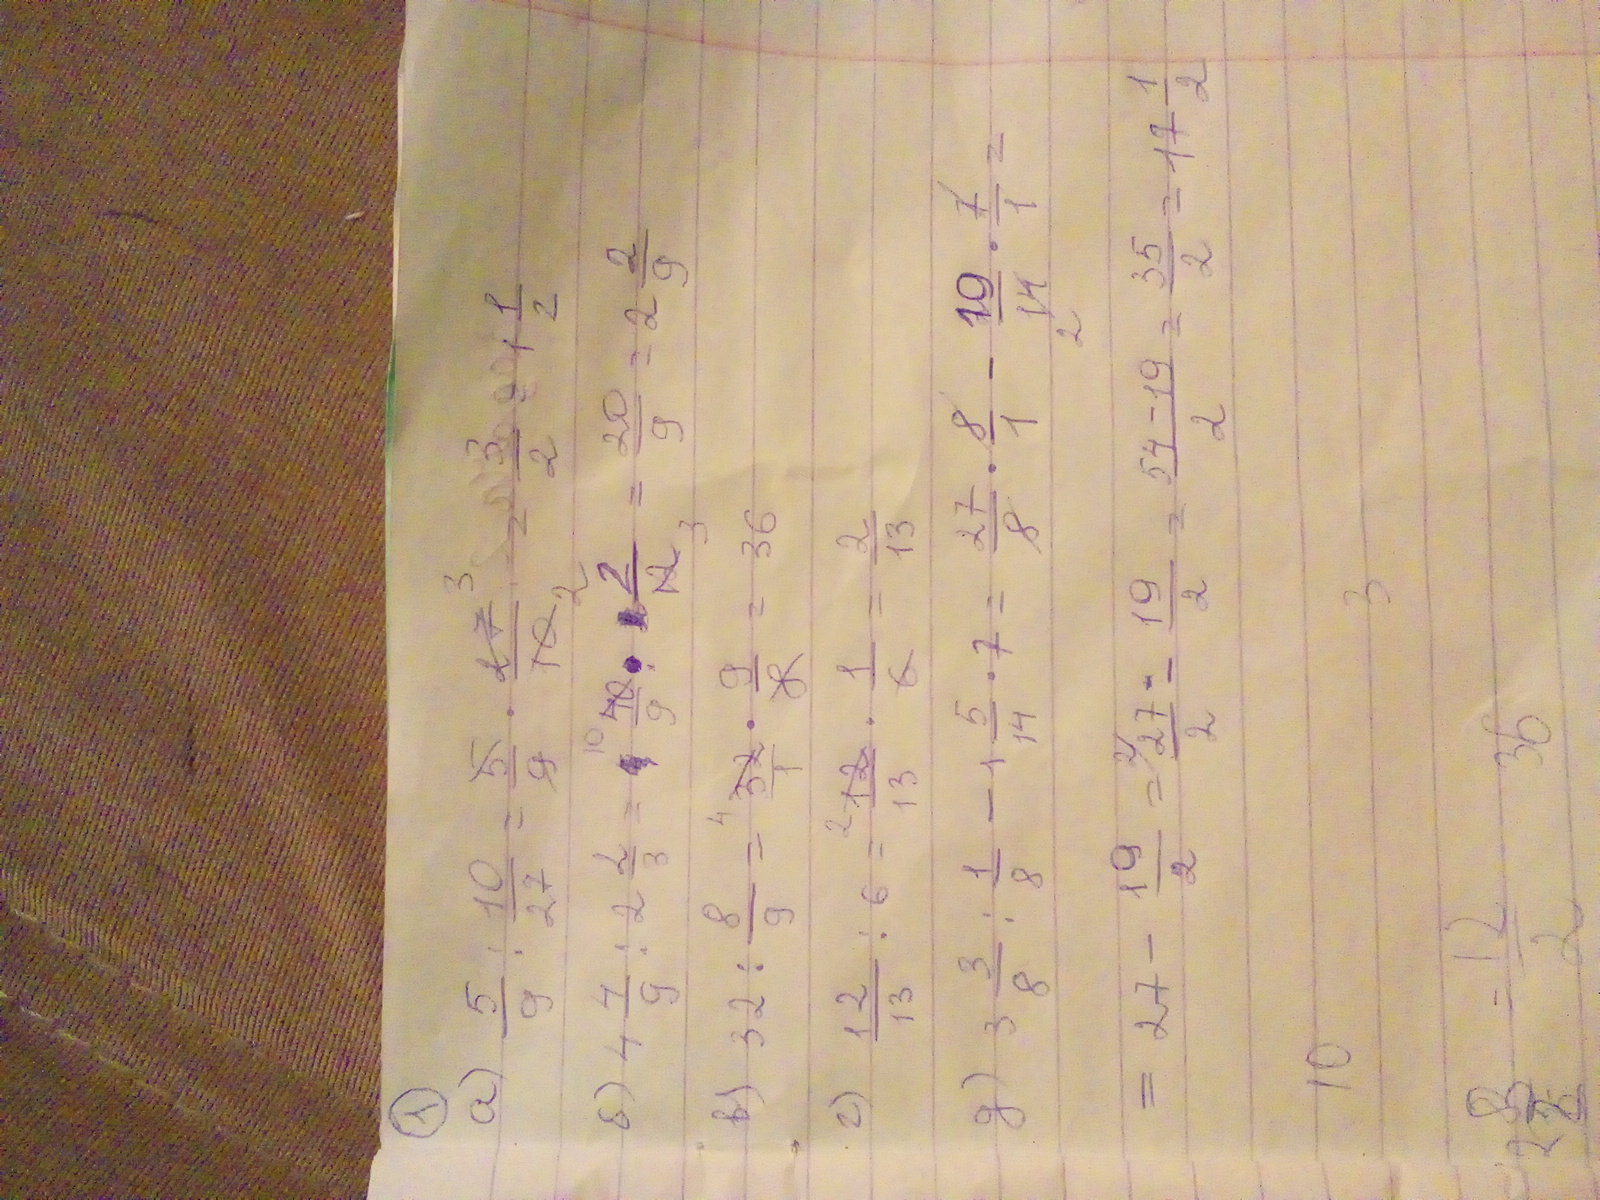 1
а) 5/9 : 10/27 = 5/9 · 27/10 3 2 = 3/2 = 1 1/2
б) 4 4/9 : 2 2/3 = 10 40/9 · 2/12 3 = 20/9 = 2 2/9
в) 32 : 8/9 = 4 32/1 · 9/8 = 36
г) 12/13 : 6 = 2 12/13 · 1/6 = 2/13
д) 3 3/8 : 1/8 - 1 5/14 · 7 = 27/8 · 8/1 - 19/14 2 · 7/1 =
= 27 - 19/2 = 2 27/2 - 19/2 = 54-19/2 = 35/2 = 17 1/2
10 3
= 12/2 36